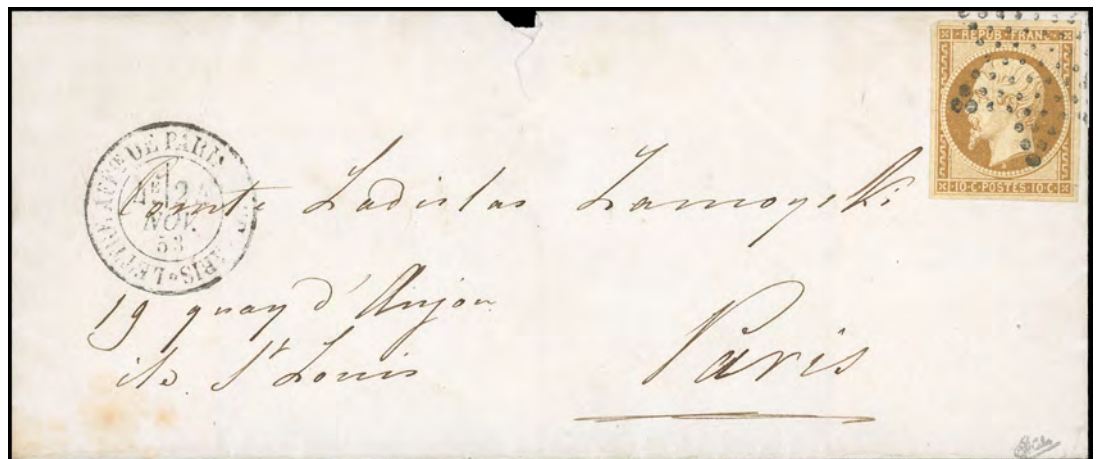 REPUB. FRANC.
10·C·POSTES·10·C·
AFFie DE PARIS
NOV.
53
Comte Ladislas Zamoyski
19 quay d'Anjou
ile St Louis
Paris